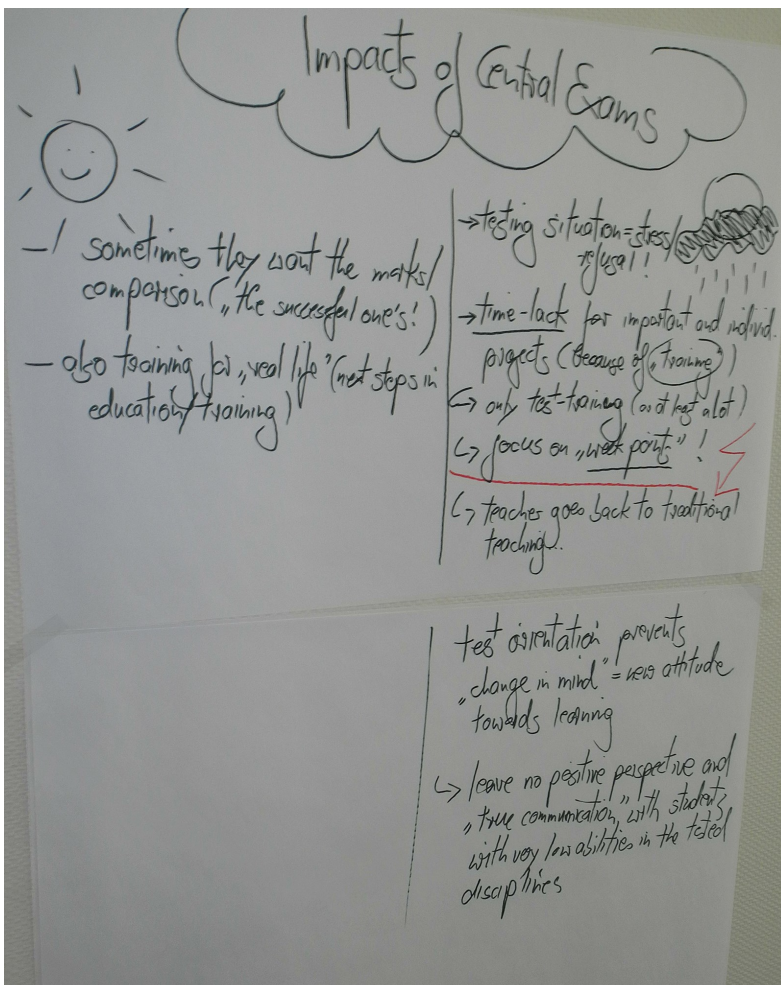 Impacts of Central Exams
-/ sometimes they want the marks/
comparison („the successful one's!")
- also training for „real life" (next steps in
education/training)
→ testing situation = stress/
refusal!
→ time-lack for important and individ.
projects (because of „training")
↳ only test-training (or at least a lot)
↳ focus on „weak points"!
↳ teacher goes back to traditional
teaching..
test orientation prevents
„change in mind" = new attitude
towards learning
↳ leave no positive perspective and
„true communication" with students
with very low abilities in the tested
disciplines